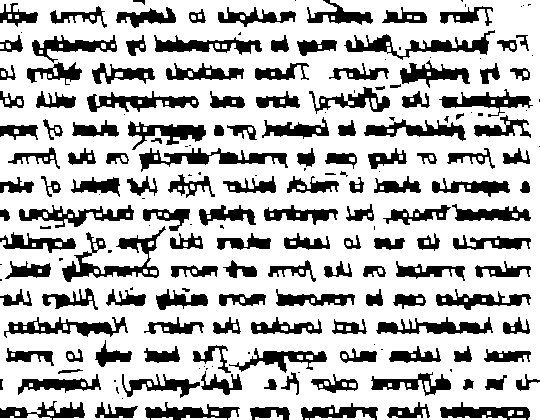 There exist several methods to design forms with
For instance, fields may be surrounded by bounding bo
or by guiding rulers. These methods specify where to
minimize the effect of skew and overlapping with oth
These guides can be located on a separate sheet of pape
the form or they can be printed directly on the form.
a separate sheet is much better from the point of view
scanned image, but requires giving more instructions a
restricts its use to tasks where this type of acquisiti
rulers printed on the form are more commonly used
rectangles can be removed more easily with filters tha
the handwritten text touches the rulers. Nevertheless,
must be taken into account: The best way to print
is in a different color (i.e. light yellow); however,
expensive than printing gray rectangles with black-an